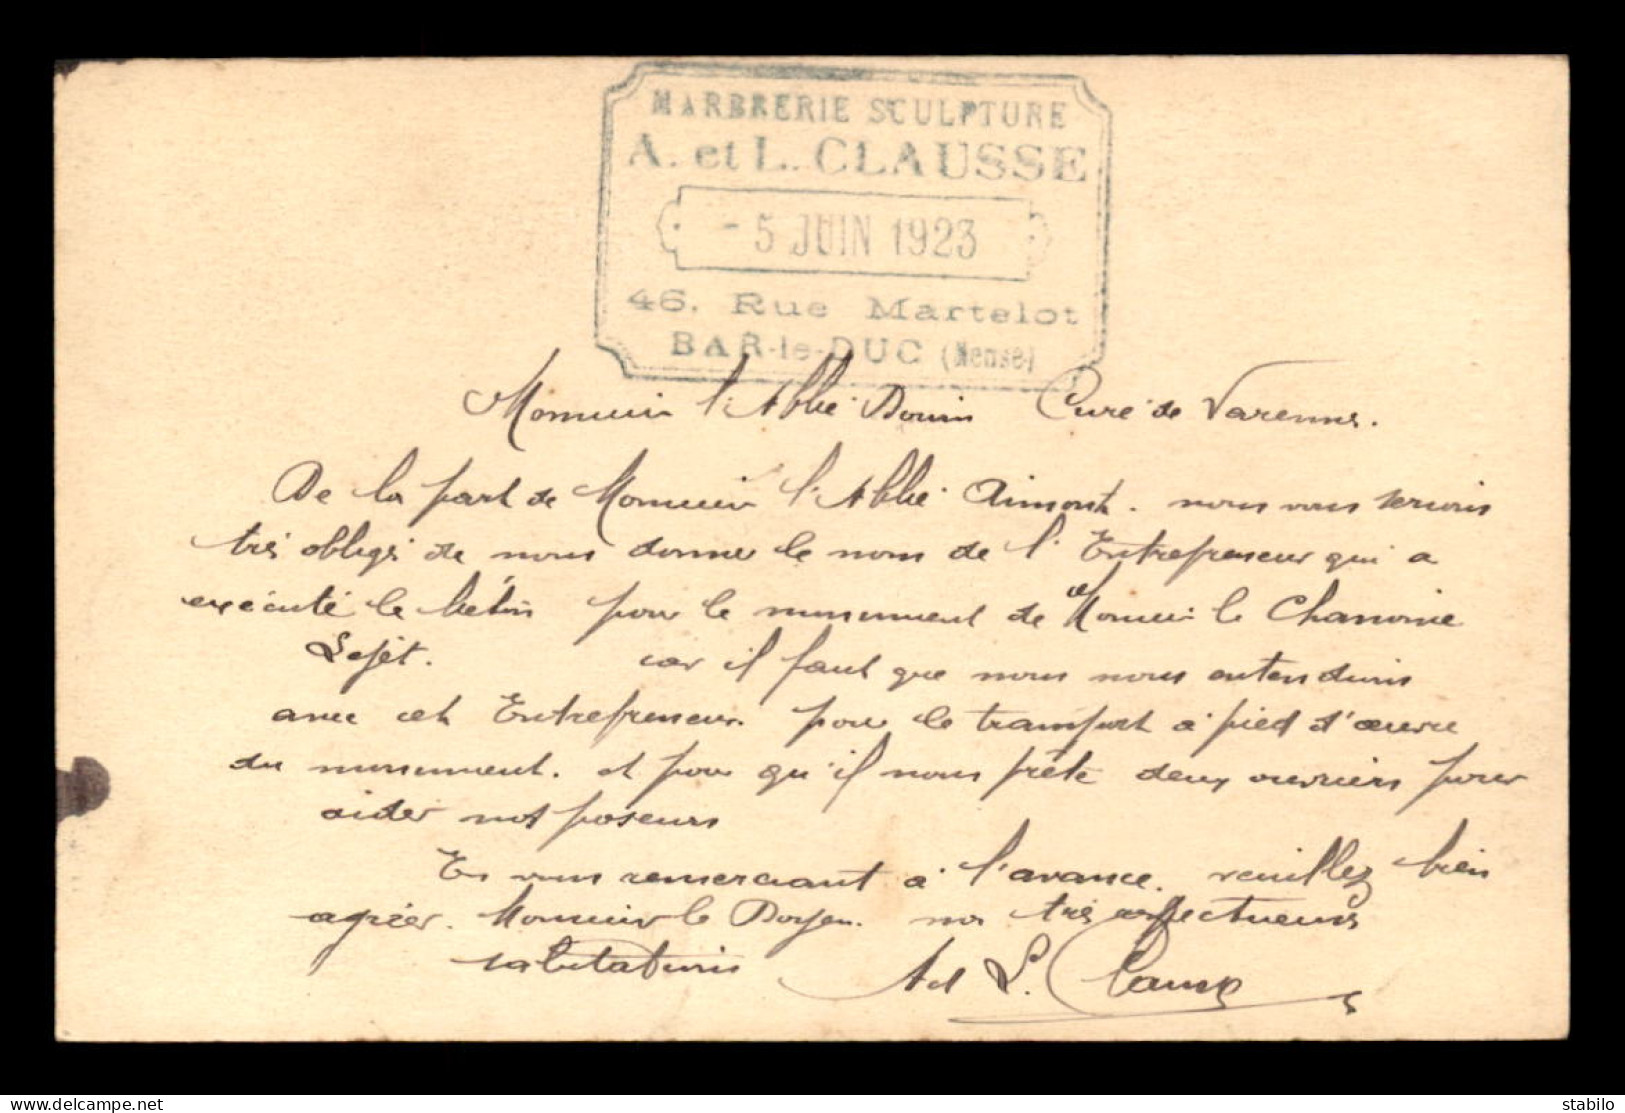 MARBRERIE SCULPTURE
A. et L. CLAUSSE
- 5 JUIN 1923
46, Rue Martelot
BAR-le-DUC (Meuse)
Monsieur l'Abbé Curé de Varennes.
De la part de Monsieur l'Abbé Aimont. nous vous serions
très obligé de nous donner le nom de l'Entrepreneur qui a
exécuté le béton pour le monument de Monsieur le Chanoine
car il faut que nous nous entendions
avec cet Entrepreneur. pour le transport à pied d'œuvre
du monument. et pour qu'il nous prête deux ouvriers pour
aider nos poseurs
En vous remerciant à l'avance. veuillez bien
agréer. Monsieur le Doyen. nos très affectueuses
salutations A et L. Clausse
delcampe.net
stabilo